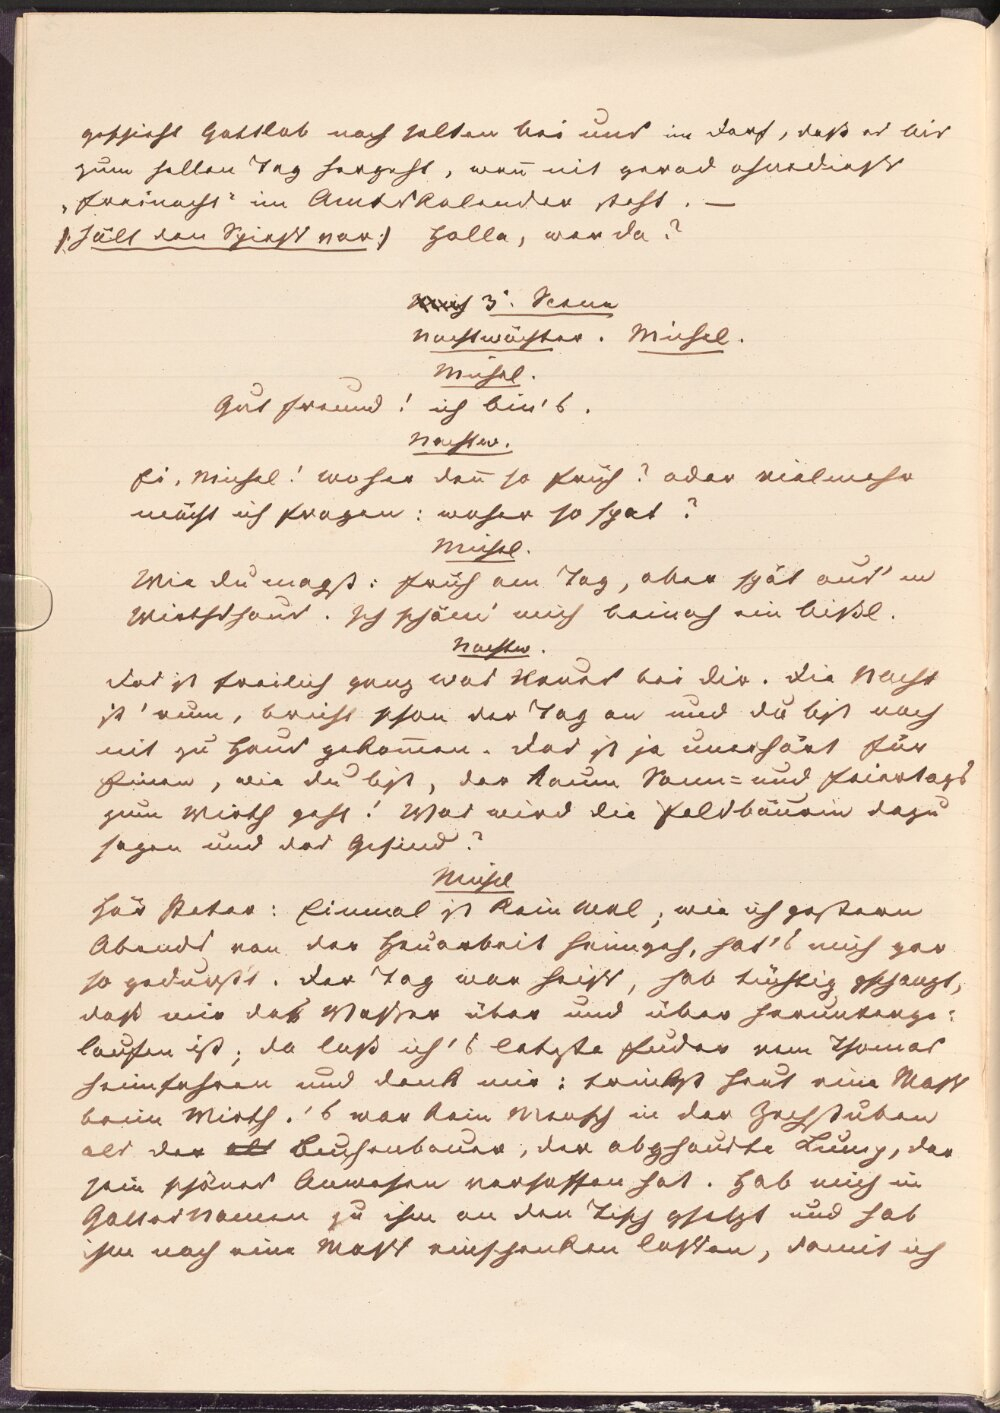 geschieht Gottlob noch selten bei uns im Dorf, daß es bis
zum hellen Tag hergeht, weñ nit gerad ohnedieß
„Freinacht" im Amtskalender steht. —
/: hält den Spieß vor :/ Holla, wer da?
3. Scene
Nachtwächter. Michel.
Michel.
Gut Freund! ich bin's.
Nachtw.
Ei, Michel! woher deñ so früh? oder vielmehr
möcht ich fragen: woher so spat?
Michel.
Wie du magst: früh am Tag, aber spät aus'm
Wirthshaus. Ich schäm' mich beinah ein bißl.
Nachtw.
Das ist freilich ganz was Neues bei dir. Die Nacht
ist 'rum, bricht schon der Tag an und du bist noch
nit zu Haus gekom̃en. Das ist ja unerhört für
Einen, wie du bist, der kaum Sonn= und Feiertags
zum Wirth geht! Was wird die Feldbäurin dazu
sagen und das Gesind?
Michel
Hör Peter: Einmal ist kein Mal; wie ich gestern
Abends von der Heuarbeit heimgeh, hat's mich gar
so gedurst't. Der Tag war heiß, hab tüchtig gschanzt,
daß mir das Wasser über und über herunterge=
laufen ist; da laß ich's letzte Fuder vom Thomas
heimfahren und denk mir: trinkst heut eine Maß
beim Wirth. 's war kein Mensch in der Zechstuben
als der Buchenbauer, der abghauste Lump, der
sein schönes Anwesen versoffen hat. Hab mich in
Gottesnamen zu ihm an den Tisch gsetzt und hab
ihm noch eine Maß einschenken lassen, damit ich